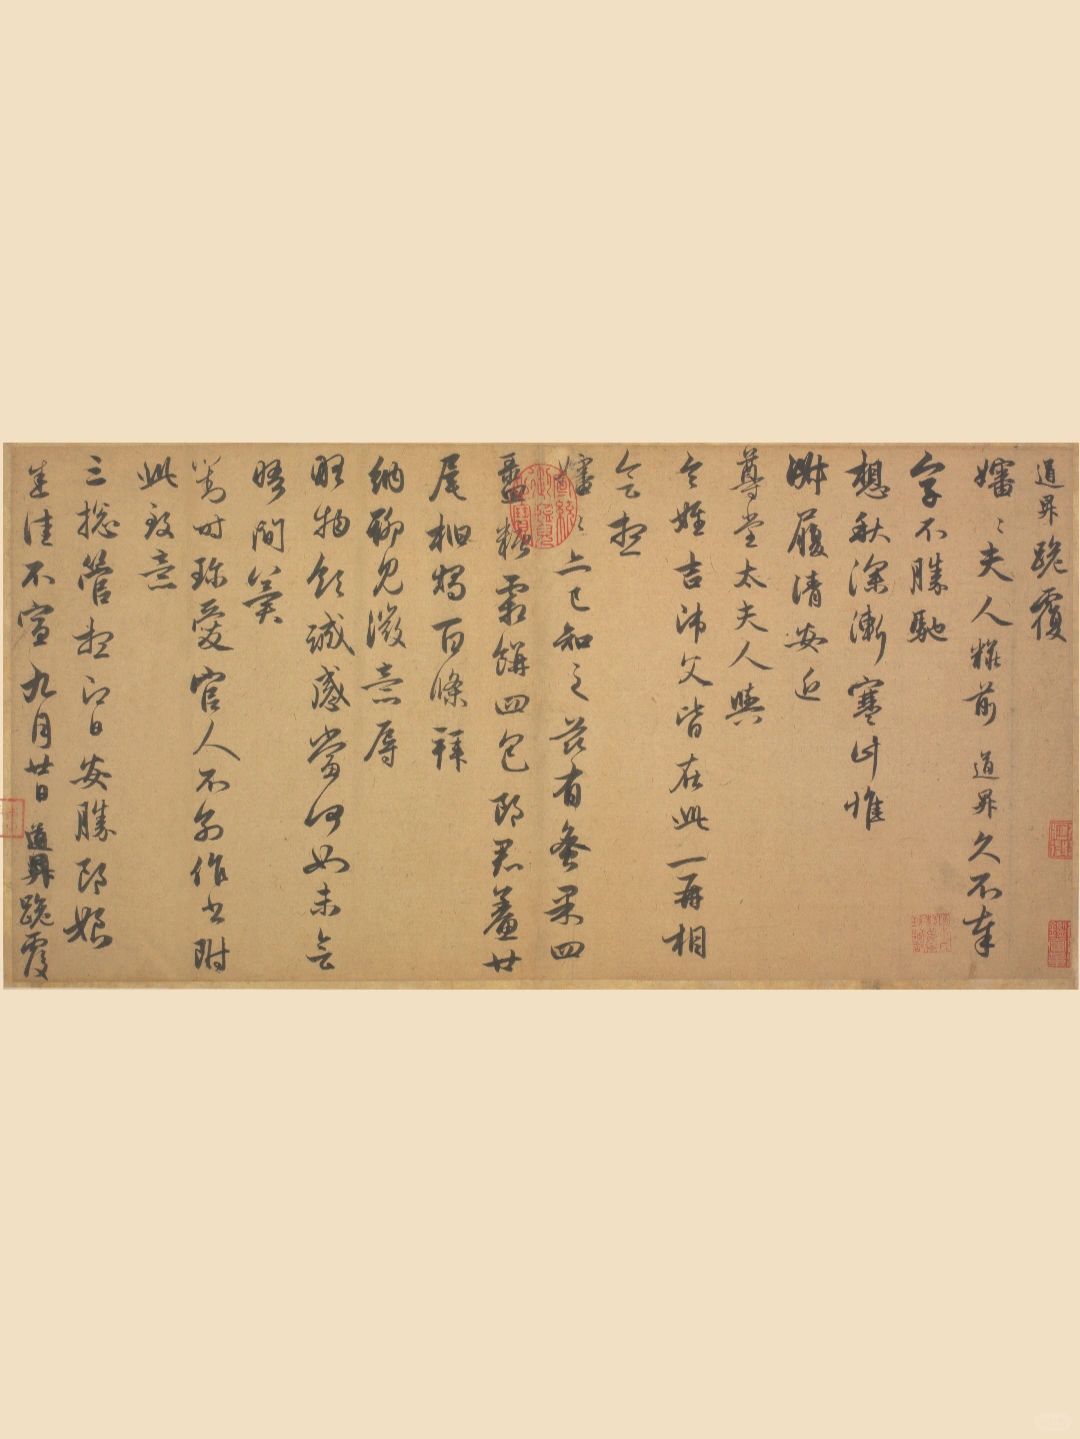 道昇跪覆
嬸〻夫人糚前道昇久不奉
字不勝馳
想秋深漸寒計惟
淑履清安近
尊堂太夫人與
令姪吉沛父皆在此一再相
會想
嬸〻亦已知之茲有蜜果四
盝糖霜餅四包郎君鯗廿
尾桕燭百條拜
納聊見微意辱
略物領誠感當何如未會
晤間冀
對時珍愛官人不別作書附
此致意
三總管想即日安勝郎娘
悉佳不宣九月廿日道昇跪覆